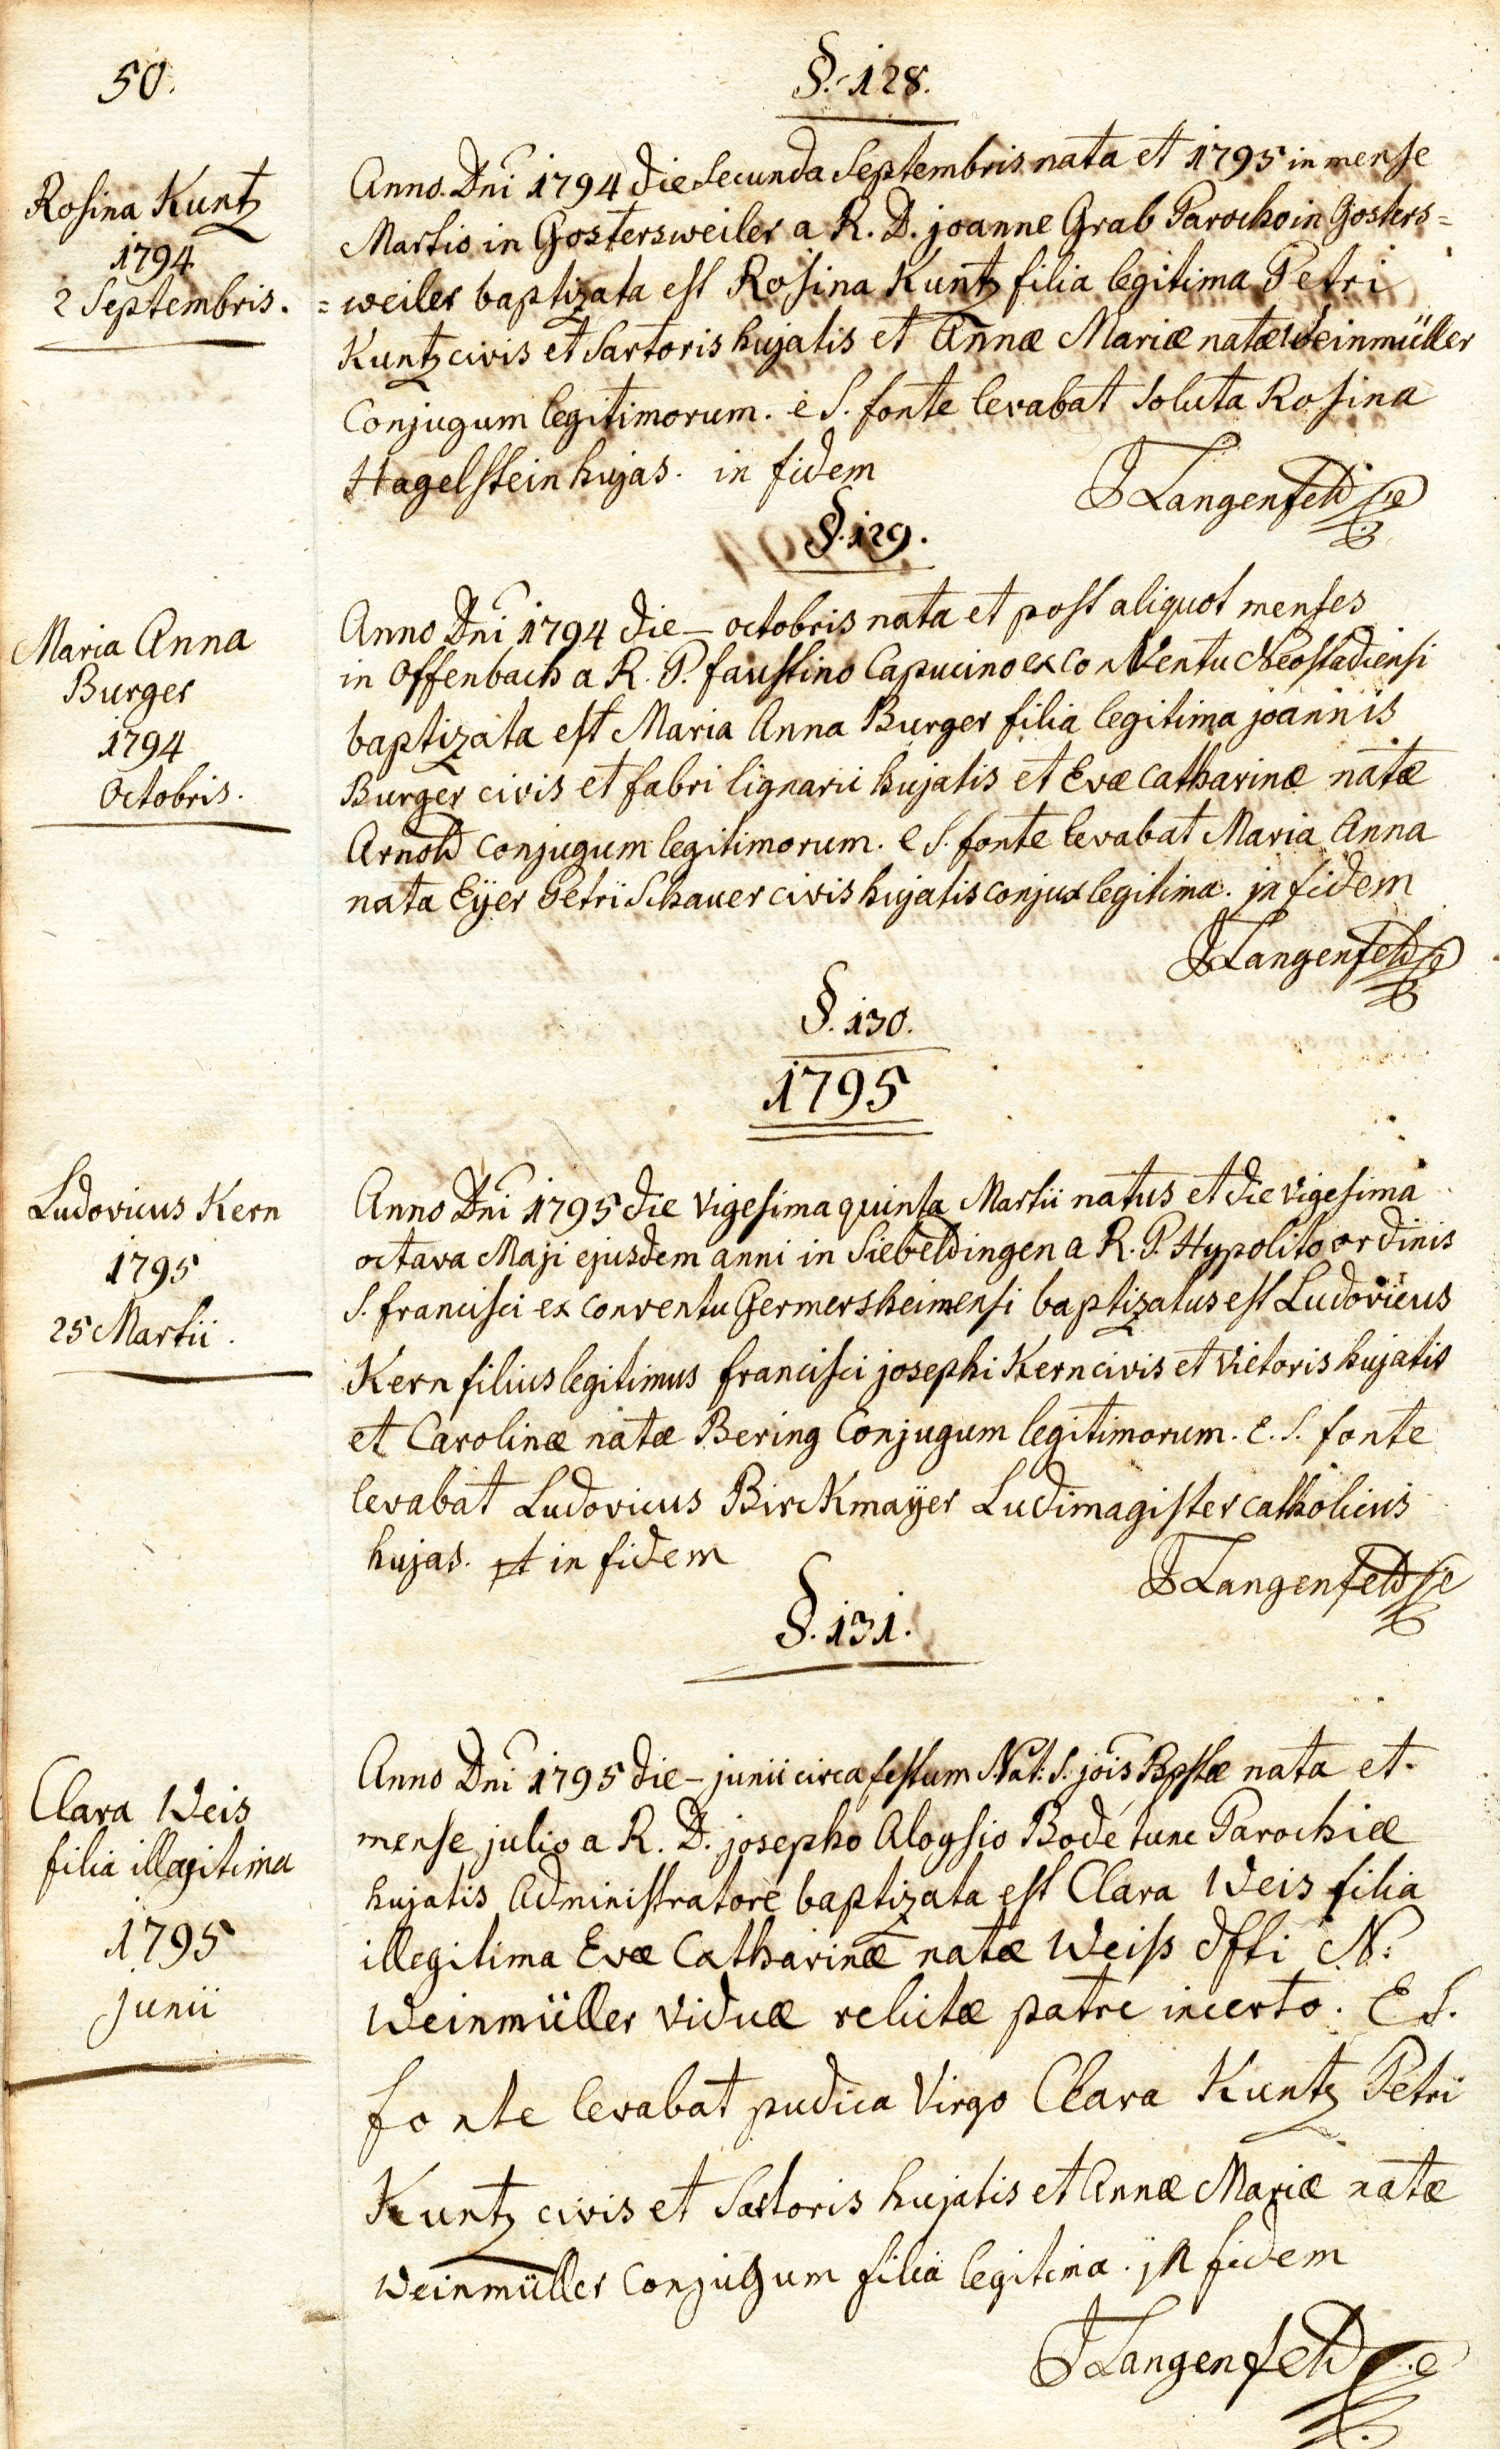 50.
§. 128.
Rosina Kuntz
1794
2 Septembris.
Anno Dni 1794 die secunda Septembris nata et 1795 in mense
Martio in Gostersweiler a R. D. joanne Grab Parocho in Gosters=
=weiler baptizata est Rosina Kuntz filia legitima Petri
Kuntz civis et Sartoris hujatis et Annæ Mariæ natæ Weinmüller
Conjugum legitimorum. è S. fonte levabat soluta Rosina
Hagelstein hujas. in fidem
J Langenfeld
§. 129.
Maria Anna
Burger
1794
Octobris.
Anno Dni 1794 die — octobris nata et post aliquot menses
in Offenbach a R. P. faustino Capucino ex Conventu Neostadiensi
baptizata est Maria Anna Burger filia legitima joannis
Burger civis et fabri lignarii hujatis et Evæ Catharinæ natæ
Arnold Conjugum legitimorum. e S. fonte levabat Maria Anna
nata Eÿer Petri Schauer civis hujatis conjux legitima. jn fidem
J Langenfeld
§. 130.
1795
Ludovicus Kern
1795
25 Martii.
Anno Dni 1795 die vigesima quinta Martii natus et die vigesima
octava Maji ejusdem anni in Siebeldingen a R. P. Hypolito ordinis
S. francisci ex conventu Germersheimensi baptizatus est Ludovicus
Kern filius legitimus francisci josephi Kern civis et vietoris hujatis
et Carolinæ natæ Bering Conjugum legitimorum. E. S. fonte
levabat Ludovicus Birckmaÿer Ludimagister catholicus
hujas. in fidem
J Langenfeld
§. 131.
Clara Weis
filia illegitima
1795
junii
Anno Dni 1795 die — junii circa festum Nat: S. jois Bpstæ nata et
mense julio a R. D. josepho Aloysio Bode tunc Parochiæ
hujatis Administratore baptizata est Clara Weis filia
illegitima Evæ Catharinæ natæ Weiss dfti N:
Weinmüller viduæ relictæ patre incerto. E S.
fonte levabat pudica Virgo Clara Kuntz Petri
Kuntz civis et Sartoris hujatis et Annæ Mariæ natæ
Weinmüller Conjugum filia legitima. jn fidem
J Langenfeld